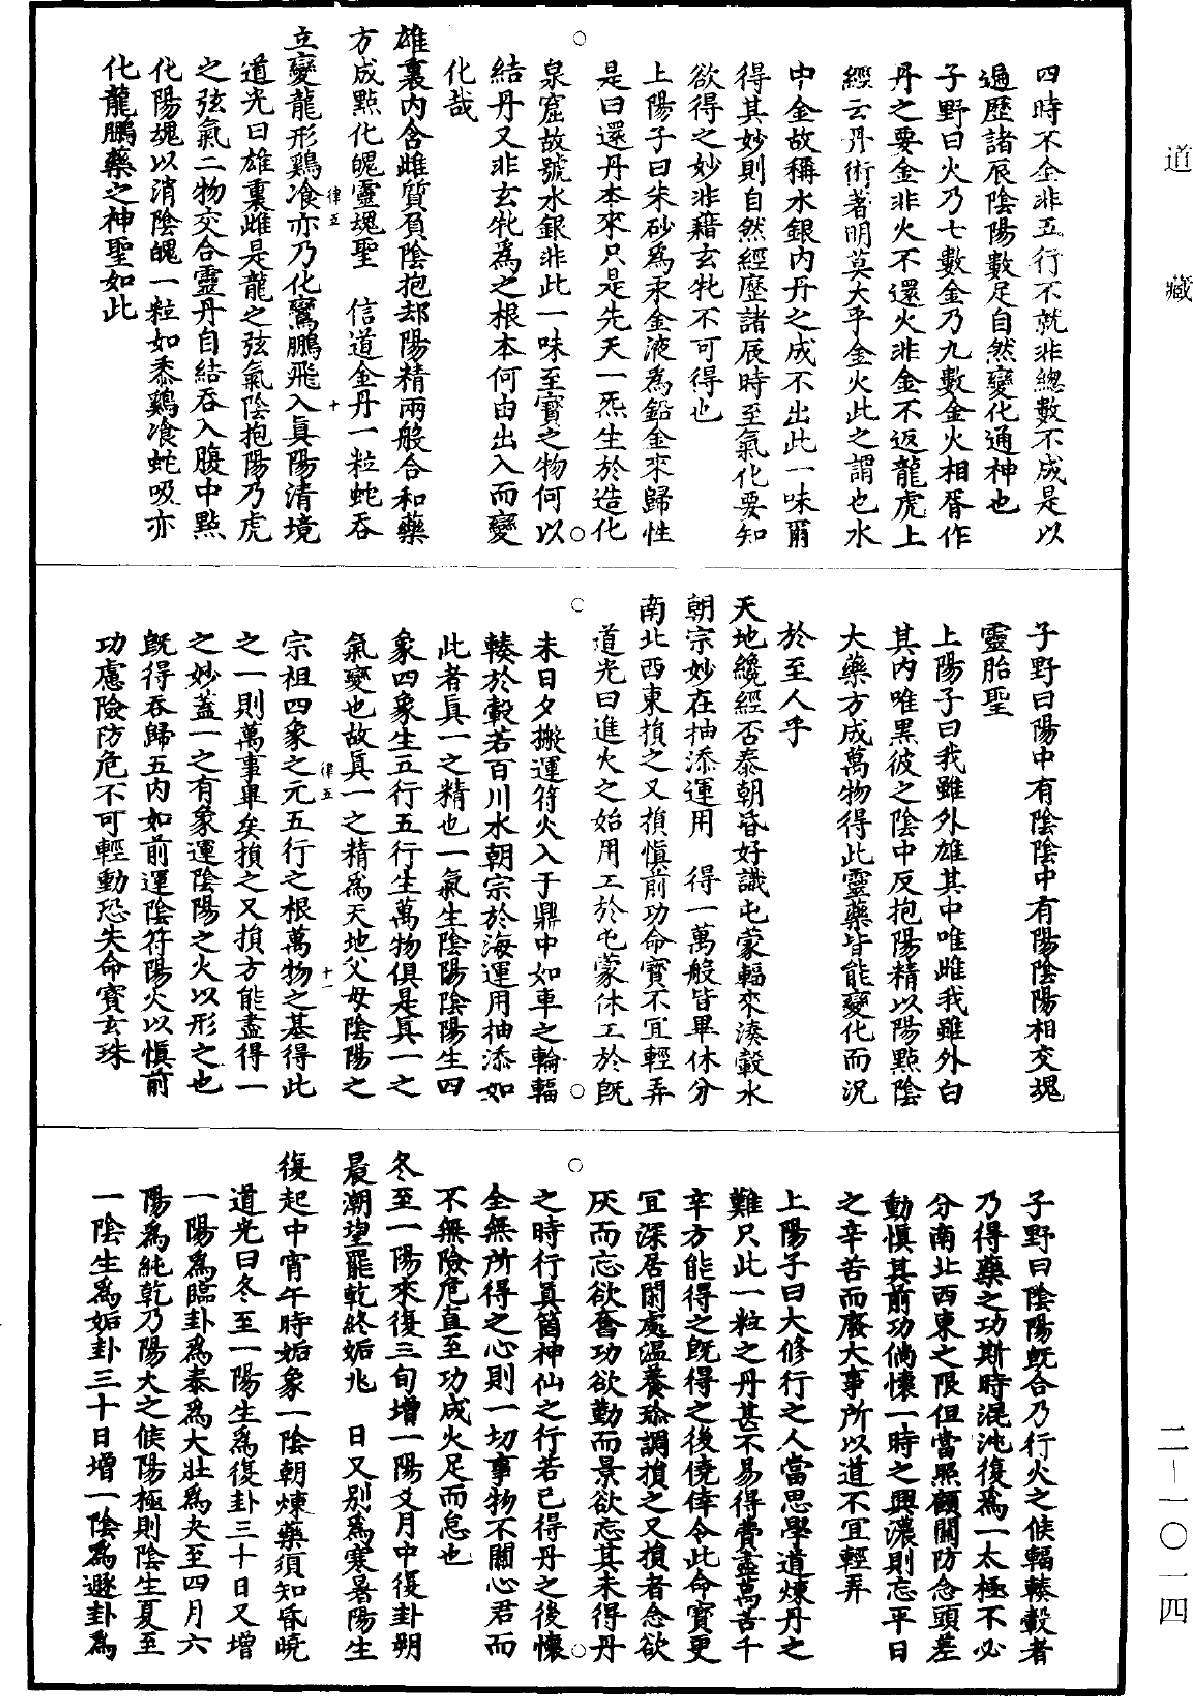 道藏
四時不全非五行不就非總數不成是以
遍歷諸辰陰陽數足自然變化通神也
子野曰火乃七數金乃九數金火相胥作
丹之要金非火不還火非金不返龍虎上
經云丹術著明莫大乎金火此之謂也水
中金故稱水銀內丹之成不出此一味爾
得其妙則自然經歷諸辰時至氣化要知
欲得之妙非藉玄牝不可得也
上陽子曰朱砂為汞金液為鉛金來歸性
是曰還丹本來只是先天一炁生於造化
泉窟故號水銀非此一味至寶之物何以
結丹又非玄牝為之根本何由出入而變
化哉
雄裏內含雌質負陰抱却陽精兩般合和藥
方成點化魄靈魂聖　信道金丹一粒蛇吞
立變龍形鷄飡亦乃化鸞鵬飛入真陽清境
道光曰雄裏雌是龍之弦氣陰抱陽乃虎
之弦氣二物交合靈丹自結吞入腹中點
化陽魂以消陰魄一粒如黍鷄飡蛇吸亦
化龍鵬藥之神聖如此
律五
十
子野曰陽中有陰陰中有陽陰陽相交魂
靈胎聖
上陽子曰我雖外雄其中唯雌我雖外白
其內唯黑彼之陰中反抱陽精以陽點陰
大藥方成萬物得此靈藥皆能變化而況
於至人乎
天地纔經否泰朝昏好識屯蒙輻來湊轂水
朝宗妙在抽添運用　得一萬般皆畢休分
南北西東損之又損慎前功命寶不宜輕弄
道光曰進火之始用工於屯蒙休工於既
未日夕搬運符火入于鼎中如車之輪輻
輳於轂若百川水朝宗於海運用抽添如
此者真一之精也一氣生陰陽陰陽生四
象四象生五行五行生萬物俱是真一之
氣變也故真一之精為天地父母陰陽之
宗祖四象之元五行之根萬物之基得此
之一則萬事畢矣損之又損方能盡得一
之妙蓋一之有象運陰陽之火以形之也
既得吞歸五內如前運陰符陽火以慎前
功慮險防危不可輕動恐失命寶玄珠
律五
十一
子野曰陰陽既合乃行火之候輻輳轂者
乃得藥之功斯時混沌復為一太極不必
分南北西東之限但當照顧關防念頭差
動慎其前功倘懷一時之興濃則忘平日
之辛苦而廢大事所以道不宜輕弄
上陽子曰大修行之人當思學道煉丹之
難只此一粒之丹甚不易得費盡萬苦千
辛方能得之既得之後僥倖令此命寶更
宜深居閑處溫養珎調損之又損者念欲
灰而忘欲奮功欲勤而景欲忘其未得丹
之時行真箇神仙之行若已得丹之後懷
全無所得之心則一切事物不關心君而
不無險危直至功成火足而怠也
冬至一陽來復三旬增一陽爻月中復卦朔
晨潮望罷乾終姤兆　日又別為寒暑陽生
復起中宵午時姤象一陰朝煉藥須知昏曉
道光曰冬至一陽生為復卦三十日又增
一陽為臨卦為泰為大壯為夬至四月六
陽為純乾乃陽火之候陽極則陰生夏至
一陰生為姤卦三十日增一陰為遯卦為
二—一〇一四